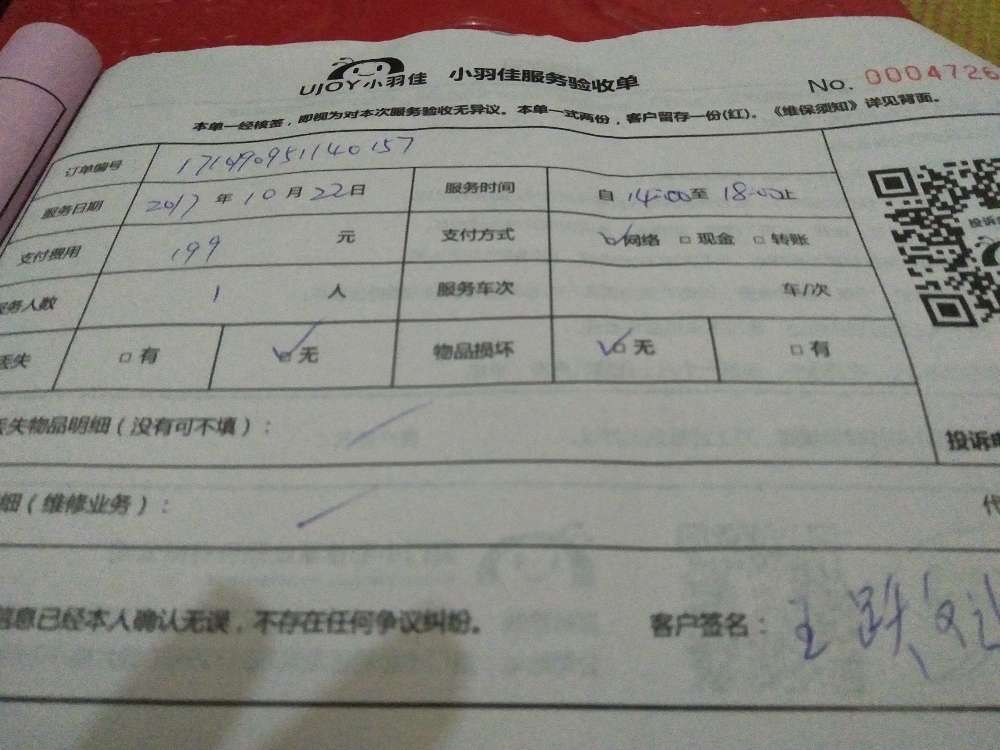 UJOY小羽佳 小羽佳服务验收单 No. 0004726
本单一经核签，即视为对本次服务验收无异议。本单一式两份，客户留存一份(红)。《维保须知》详见背面。
订单编号 171490951140157
服务日期 2017 年 10 月 22 日 服务时间 自 14:00 至 18:00 止
支付费用 199 元 支付方式 网络 现金 转账
服务人数 1 人 服务车次 车/次
丢失 有 无 物品损坏 无 有
丢失物品明细（没有可不填）：
投诉
细（维修业务）：
信息已经本人确认无误，不存在任何争议纠纷。 客户签名：王跃